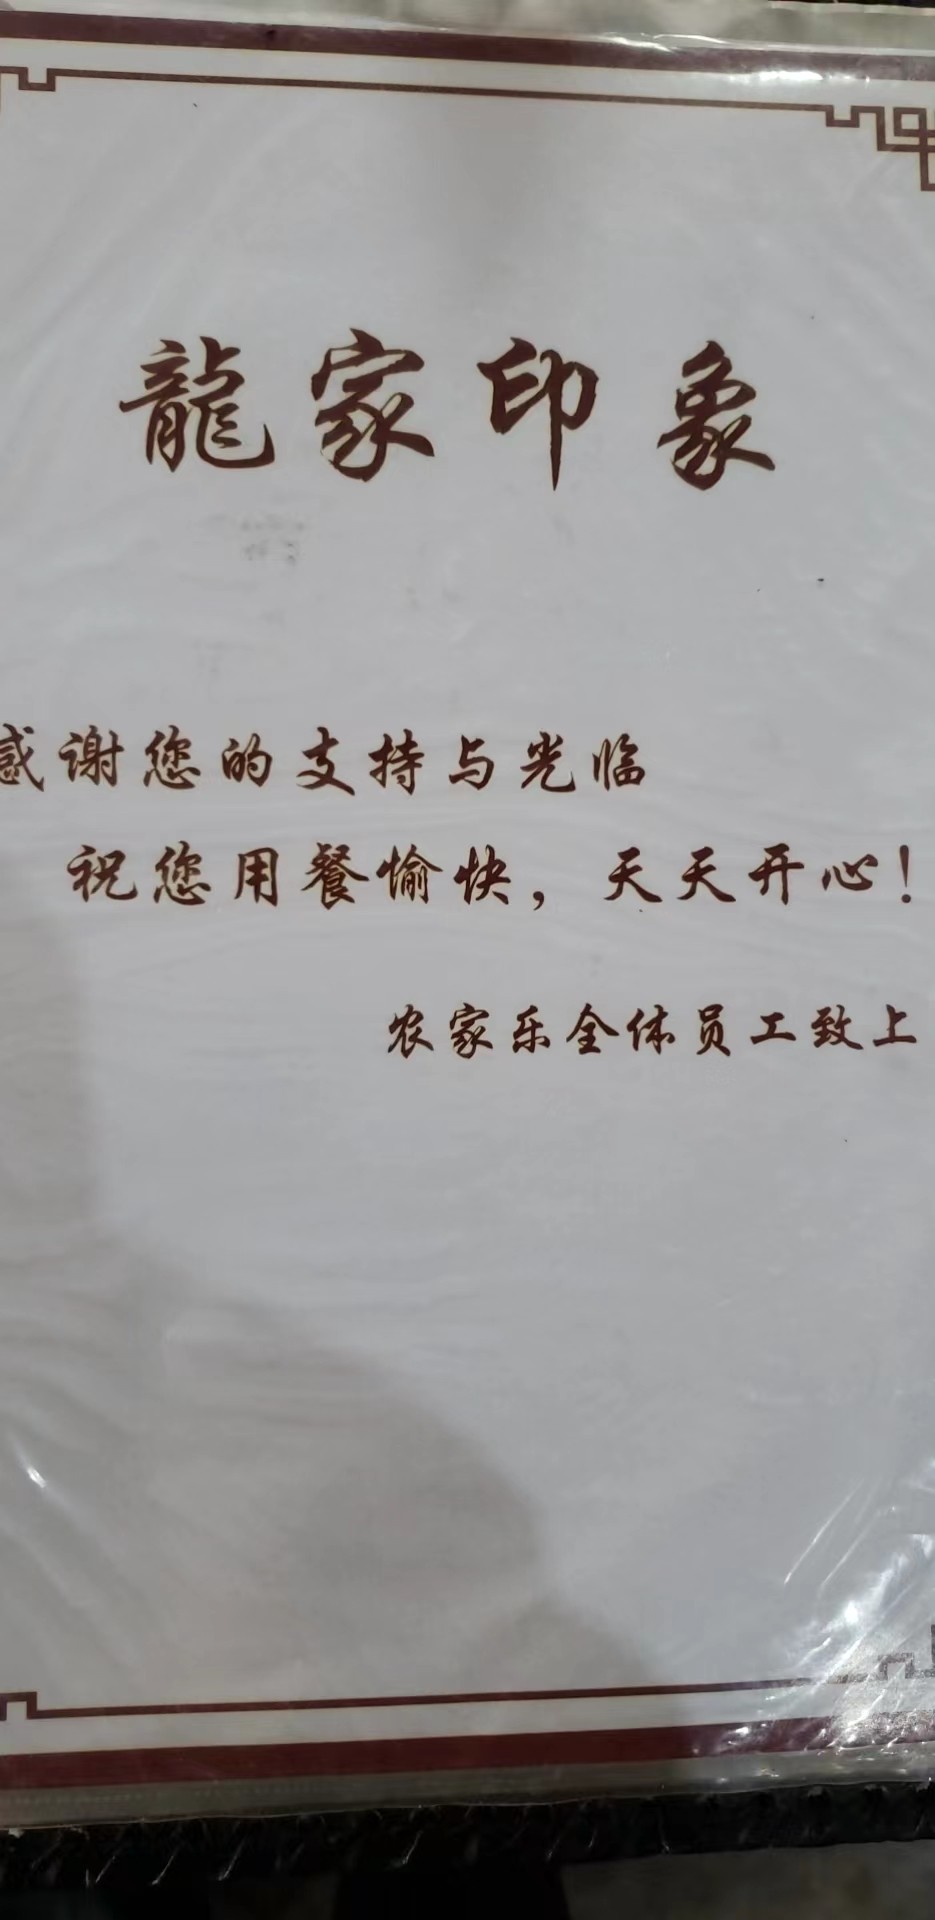 龍家印象
感谢您的支持与光临
祝您用餐愉快，天天开心！
农家乐全体员工致上